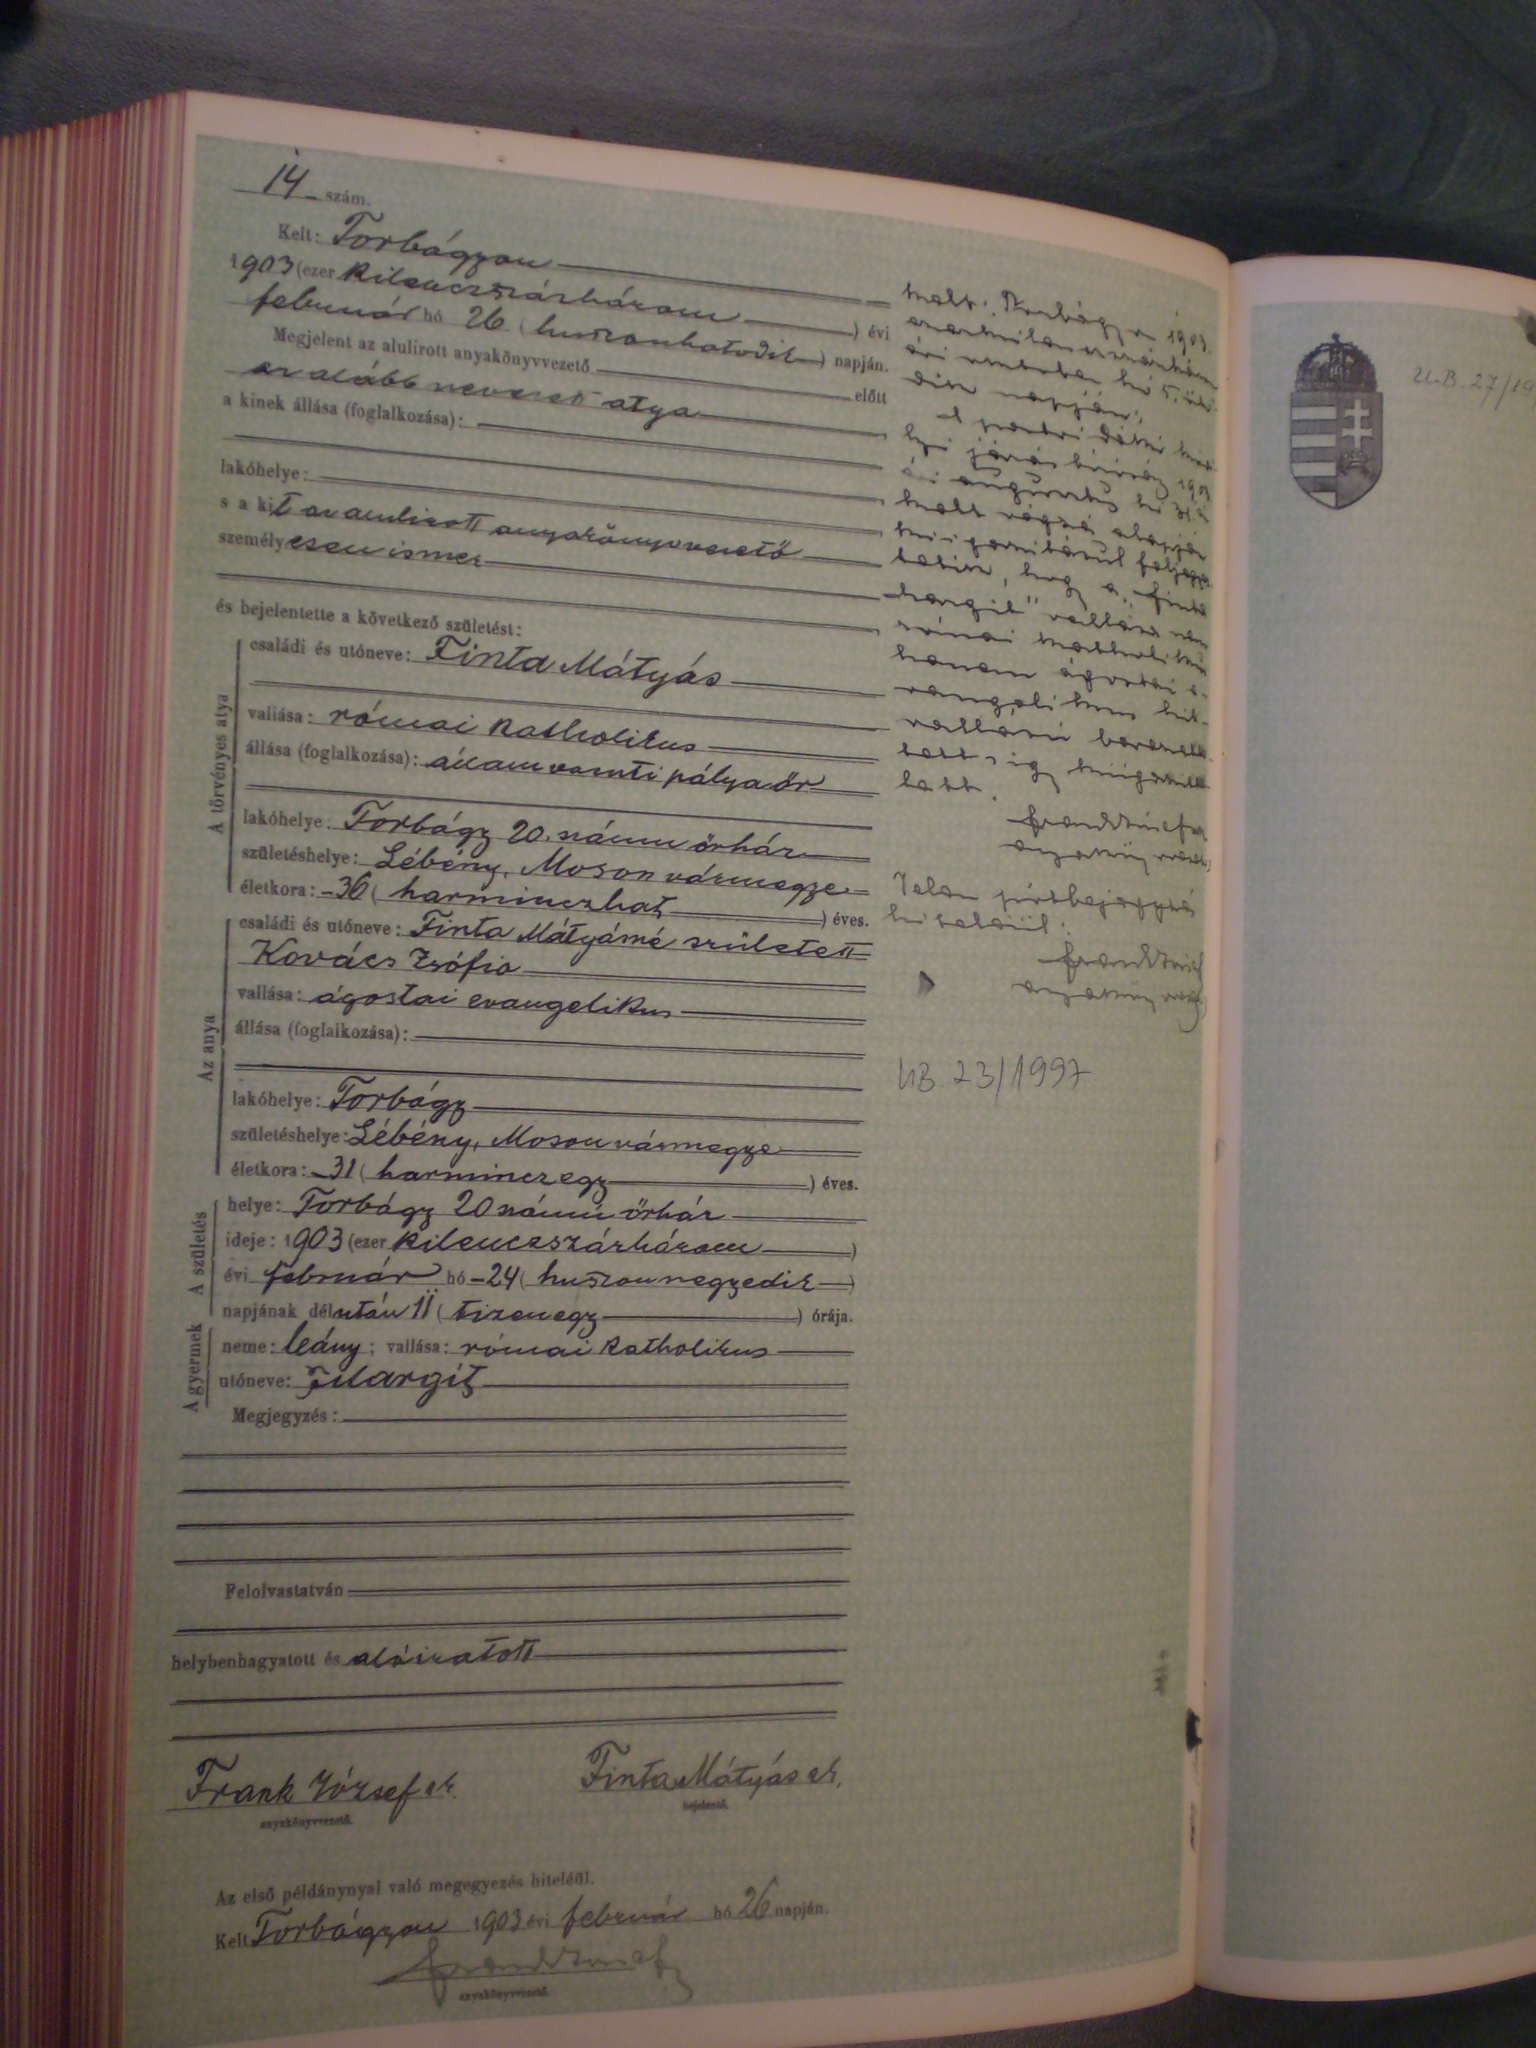 14 szám.
Kelt: Torbágyon
1903 (ezer kilenczszázhárom) évi
február hó 26 (huszonhatodik) napján.
Megjelent az alulirott anyakönyvvezető előtt
az alább nevezett atya
a kinek állása (foglalkozása):
lakóhelye:
s a kit az alulirott anyakönyvvezető
személyesen ismer
és bejelentette a következő születést:
A törvényes atya
családi és utóneve: Finta Mátyás
vallása: római katholikus
állása (foglalkozása): államvasuti pályaőr
lakóhelye: Torbágy 20. számu őrház
születéshelye: Lébény, Moson vármegye
életkora: 36 (harminczhat) éves.
Az anya
családi és utóneve: Finta Mátyásné született
Kovács Zsófia
vallása: ágostai evangelikus
állása (foglalkozása):
lakóhelye: Torbágy
születéshelye: Lébény, Moson vármegye
életkora: 31 (harminczegy) éves.
A születés
helye: Torbágy 20 számú őrház
ideje: 1903 (ezer kilenczszázhárom)
évi február hó 24 (huszonnegyedik)
napjának délután 11 (tizenegy) órája.
A gyermek
neme: leány; vallása: római katholikus
utóneve: Margit
Megjegyzés:
Felolvastatván
helybenhagyatott és aláiratott
Frank József sk.
anyakönyvvezető.
Finta Mátyás sk.
bejelentő.
Az első példánynyal való megegyezés hiteléül.
Kelt Torbágyon 1903 évi február hó 26 napján.
Frank József
anyakönyvvezető.
Kelt: Torbágyon 1903.
napján.
járásbíróság 1903
évi augusztus hó
kelt végzés alapján
kiigazításul feljegyez
tetik, hogy a "Finta
Margit" vallása nem
római katholikus
hanem ágostai e-
vangelikus hit-
vallásu
Frank József
anyakönyvvezető
Frank József
anyakönyvvezető
UB. 23/1997
U.B. 27/19